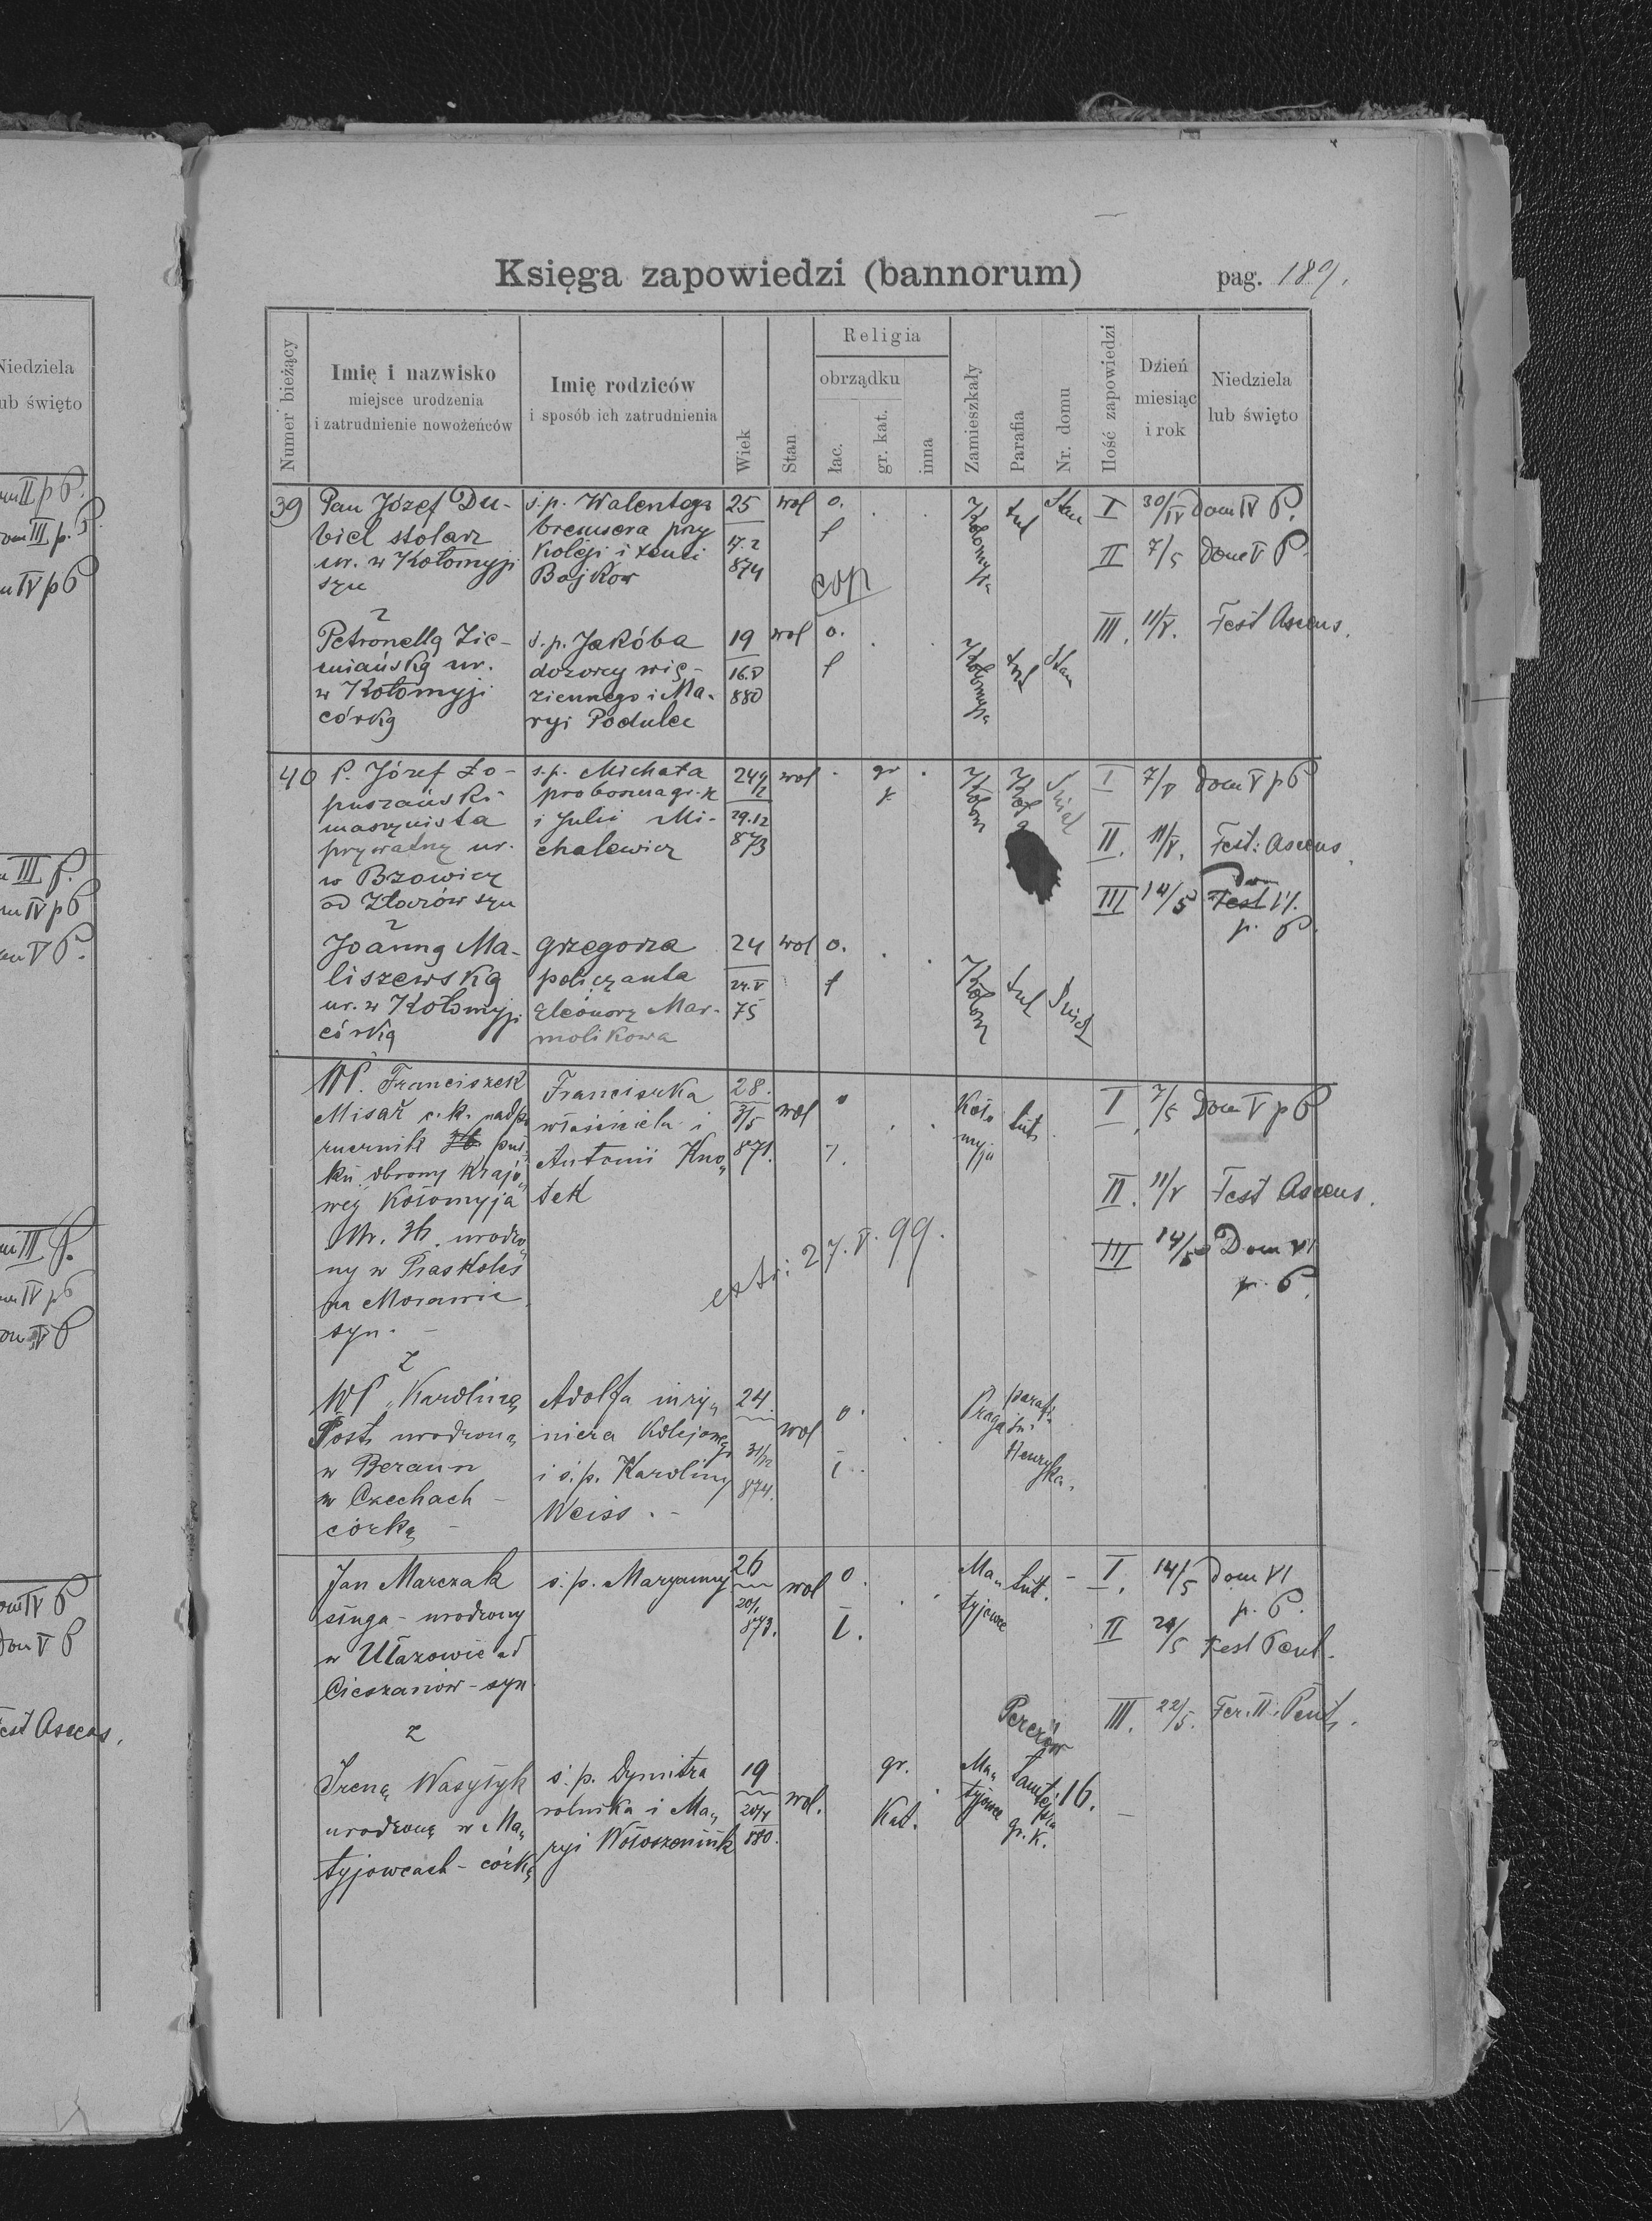 Księga zapowiedzi (bannorum)
pag. 189.
Numer bieżący
Imię i nazwisko
miejsce urodzenia
i zatrudnienie nowożeńców
Imię rodziców
i sposób ich zatrudnienia
Wiek
Stan
Religia
obrządku
łac.
gr. kat.
inna
Zamieszkały
Parafia
Nr. domu
Ilość zapowiedzi
Dzień
miesiąc
i rok
Niedziela
lub święto
39
Pan Józef Du-
biel stolarz
ur. w Kołomyji
syn
ś.p. Walentego
bremsera przy
Kolęji i
Bajkow
25
17.2
874
wol
o.
ł
cop
Kołomyja
tut
Stan
I 30/IV Dom IV P.
II 7/5 Dom V P.
III. 11/V. Fest Ascens.
z
Petronellą Zie-
miańską ur.
w Kołomyji
córką
ś.p. Jakóba
dozorcy wię-
ziennego i Ma-
ryi Podulce
19
16.V
880
wol
o.
ł
Kołomyja
tut
Stan
40
P. Józef Ło-
puszański
maszynista
prywatny ur.
w Bzowicy
ad Złoczów syn
ś.p. Michała
proboszcza gr. k
i Julii Mi-
chalewicz
24 1/2
29.12
873
wol
gr
k
Kołom
I 7/V Dom V p P
II. 11/V. Fest: Ascens.
III 14/5 Fest Dom VI.
p. P.
z
Joanną Ma-
liszewską
ur. w Kołomyji
córką
Grzegorza
policzanta
Eleonory Mar-
molikowa
24
24.V
75
wol
o.
ł
Kołom
tut
WP. Franciszek
Misař c.k. nadpo
rucznik 36 puł
ku obrony krajo
wej Kołomyja
Nr. 36. urodzo
ny w Praskoles
na Morawie
syn. -
Franciszka
właściciela i
Antonii Kno
tek
28.
3/5
871.
wol
o
Koło
myja
tut.
I. 7/5 Dom V p P
II. 11/V Fest Ascens.
III 14/5 Dom VI
p. P.
extr: 27.V.99.
z
WP Karoliną
Post, urodzoną
w Beraun
w Czechach -
córką -
Adolfa inży
niera Kolejowego
i ś.p. Karoliny
Weiss. -
24.
31/12
874.
wol
o.
ł.
Praga
parafi.
św.
Henryka.
Jan Marczak
sługa - urodzony
w Ułazowie ad
Cieszanów - syn.
ś.p. Maryanny
26
20/1
873.
wol
o.
ł.
Ma
tyjowce
tut. -
I. 14/5 Dom VI
p. P.
II 21/5 Fest Pent.
III. 22/5. Fer. II. Pent.
z
Ireną Wasyłyk
urodzoną w Ma
tyjowcach - córką
ś.p. Dymitra
rolnika i Ma
ryi Wołoszeniuk
19
20/4
880.
wol.
gr.
Kat.
Ma
tyjowce
Pererów
gr. k.
16.
Niedziela
lub święto
Dom II p P.
Dom III p. P.
Dom IV p P
Dom III P.
Dom IV p P
Dom V P.
Dom III P.
Dom IV p P
Dom V P
Dom IV P
Dom V P
Fest Ascens.